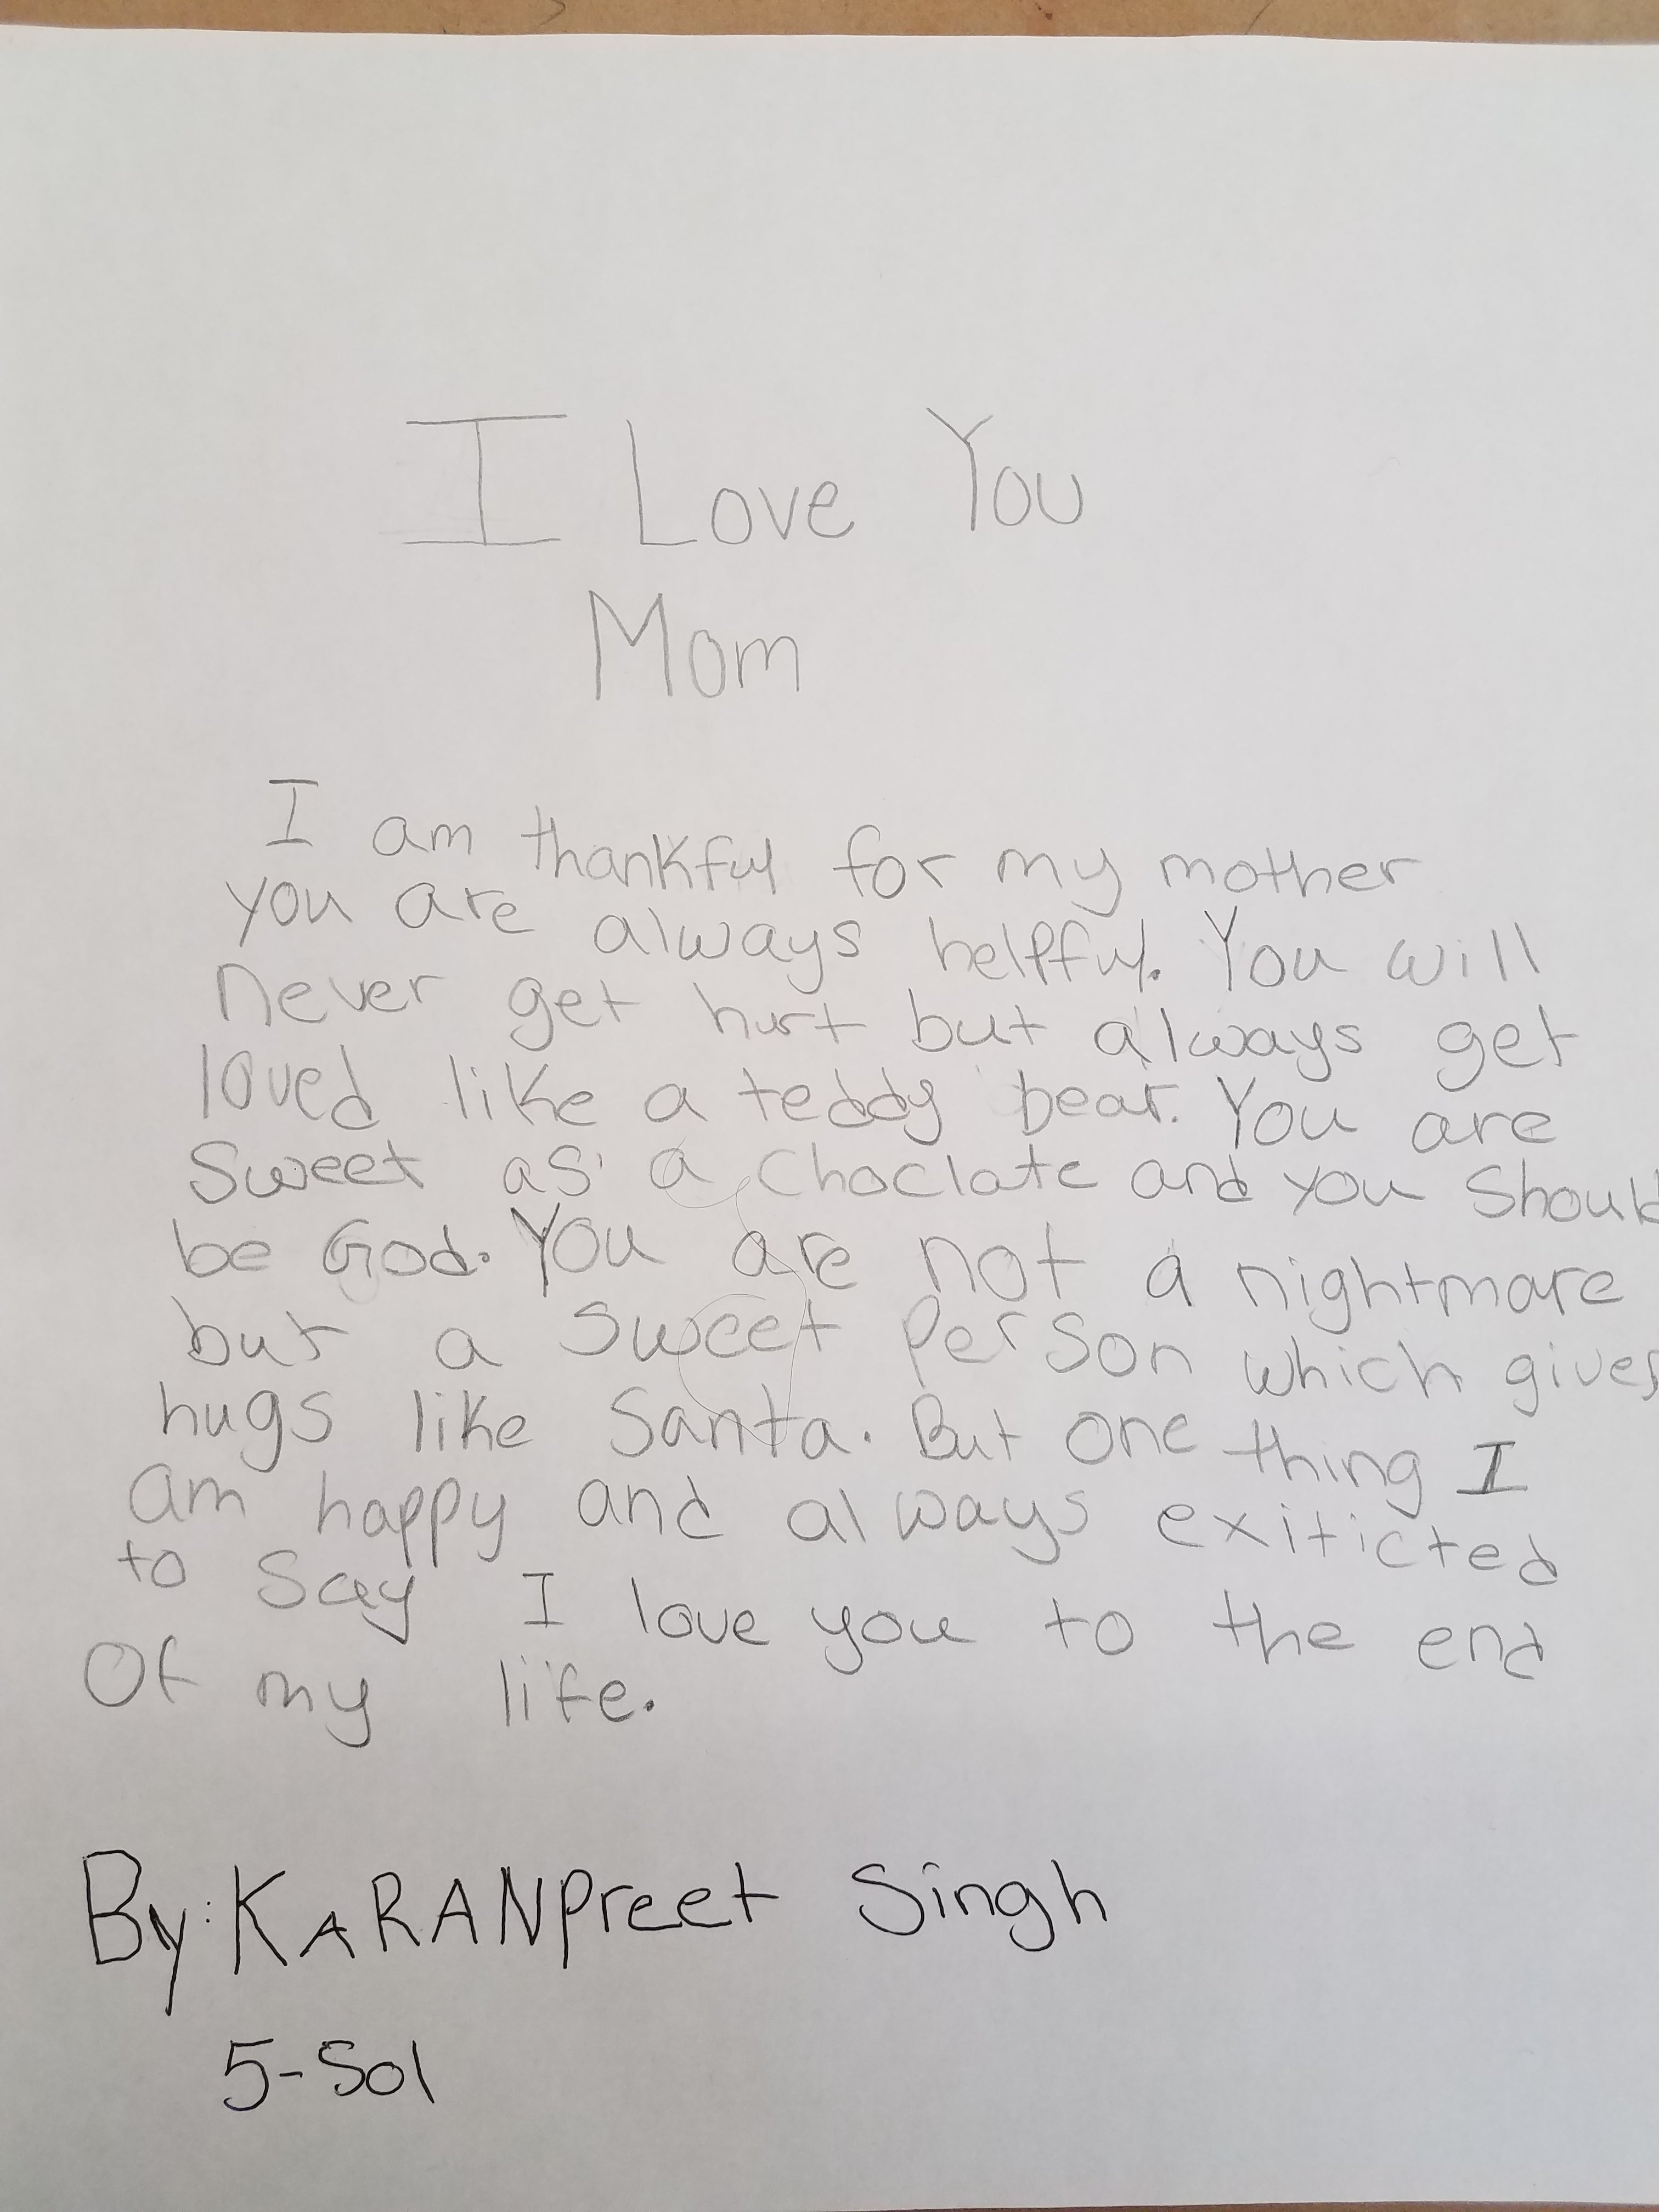 I Love You
Mom
I am thankful for my mother
you are always helpful. You will
never get hurt but always get
loved like a teddy bear. You are
Sweet as a choclate and you should
be God. You are not a nightmare
but a sweet person which gives
hugs like Santa. But one thing I
am happy and always exiticted
to say I love you to the end
Of my life.
By: KARANPreet Singh
5-Sol